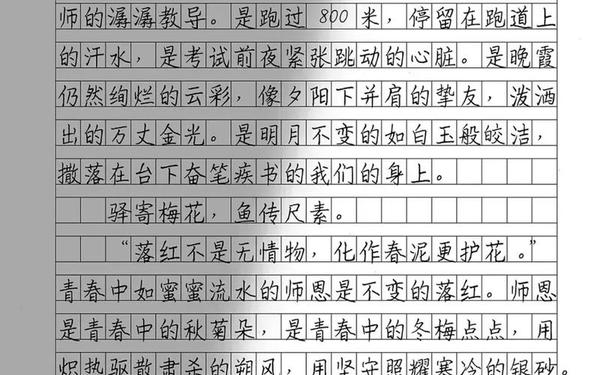 师的潺潺教导。是跑过800米，停留在跑道上
的汗水，是考试前夜紧张跳动的心脏。是晚霞
仍然绚烂的云彩，像夕阳下并肩的挚友，泼洒
出的万丈金光。是明月不变的如白玉般皎洁，
撒落在台下奋笔疾书的我们的身上。
驿寄梅花，鱼传尺素。
“落红不是无情物，化作春泥更护花。”
青春中如蜜蜜流水的师恩是不变的落红。师恩
是青春中的秋菊朵，是青春中的冬梅点点，用
炽热驱散肃杀的朔风，用坚守照耀寒冷的银砂。